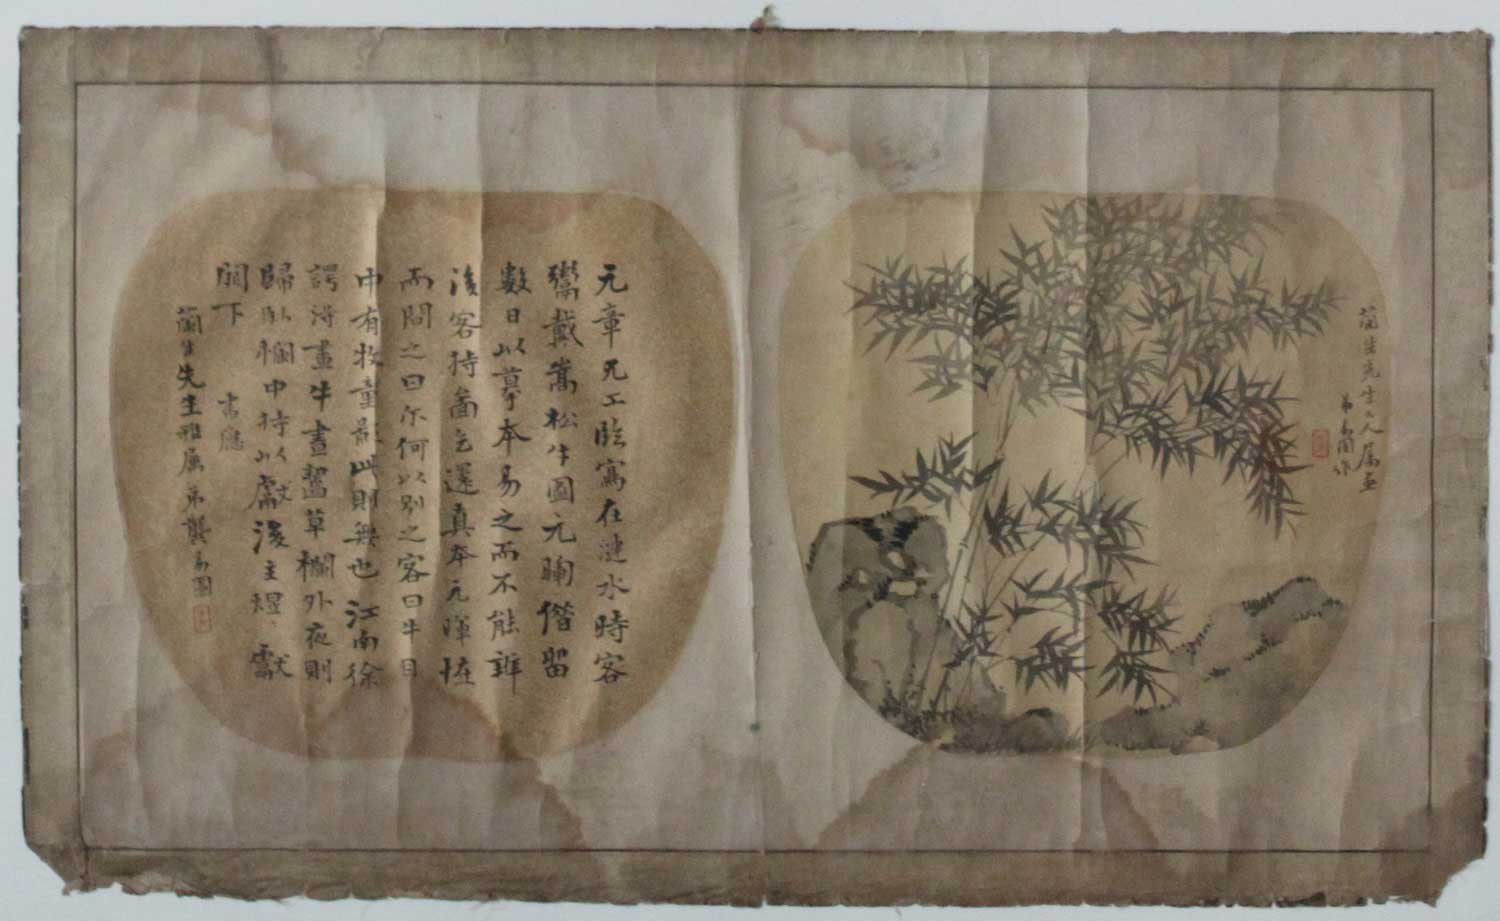 蘭生先生大人屬畫
弟易圖作
元章尤工臨寫在漣水時客
鬻戴嵩松牛圖元暉借留
數日以摹本易之而不能辨
後客持圖乞還真本元暉怪
而問之曰尔何以別之客曰牛目
中有牧童影此則無也江南徐
諤得畫牛晝齧草欄外夜則
歸臥欄中持以獻後主煜〻獻
闕下 書應
蘭生先生雅屬弟龔易圖